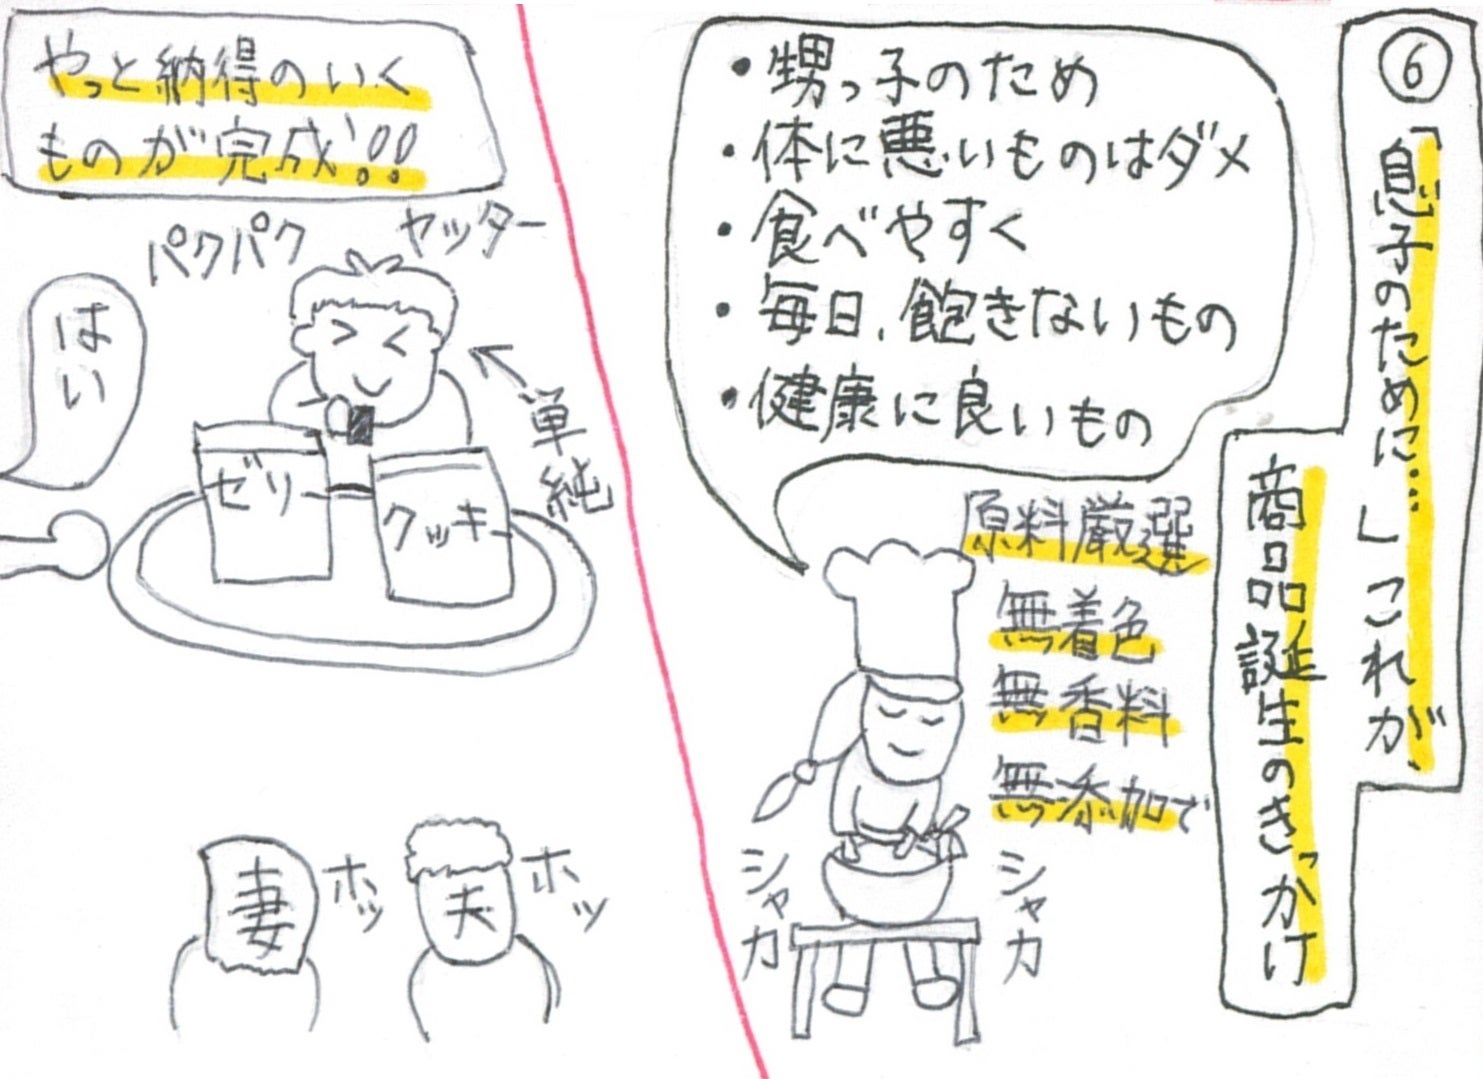 ⑥「息子のために…」これが、
商品誕生のきっかけ
・甥っ子のため
・体に悪いものはダメ
・食べやすく
・毎日、飽きないもの
・健康に良いもの
原料厳選
無着色
無香料
無添加で
シャカ
シャカ
やっと納得のいく
ものが完成!!
パクパク
ヤッター
はい
単純
ゼリー
クッキー
妻
ホッ
夫
ホッ